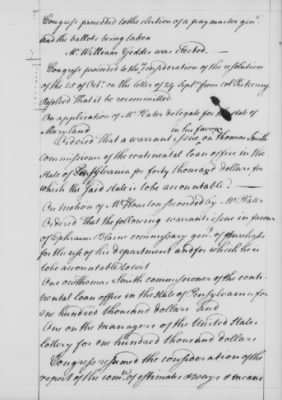 Congress proceeded to the election of a paymaster gen.
and the ballots being taken
Mr. William Geddes was elected.
Congress proceeded to the consideration of the resolution
of the 25 of Octr. on the letter of 24 Septr. from col Pickering
Resolved that it be recommitted.
On application of Mr. Plater delegate for the state of
Maryland
Ordered that a warrant issue in his favour on Thomas Smith
commissioner of the continental loan office in the
State of Pensylvania for forty thousand dollars for
which the said state is to be accountable.
On motion of Mr. Houston seconded by Mr. Plater
Ordered That the following warrants issue in favour
of Ephraim Blaine commissary genl. of purchases
for the use of his department and for which he is
to be accountable to wit
One on Thomas Smith commissioner of the conti-
nental loan office in the State of Pensylvania for
One hundred thousand dollars and
One on the managers of the United States
lottery for One hundred thousand dollars
Congress resumed the consideration of the
report of the comee. of estimates & ways & means